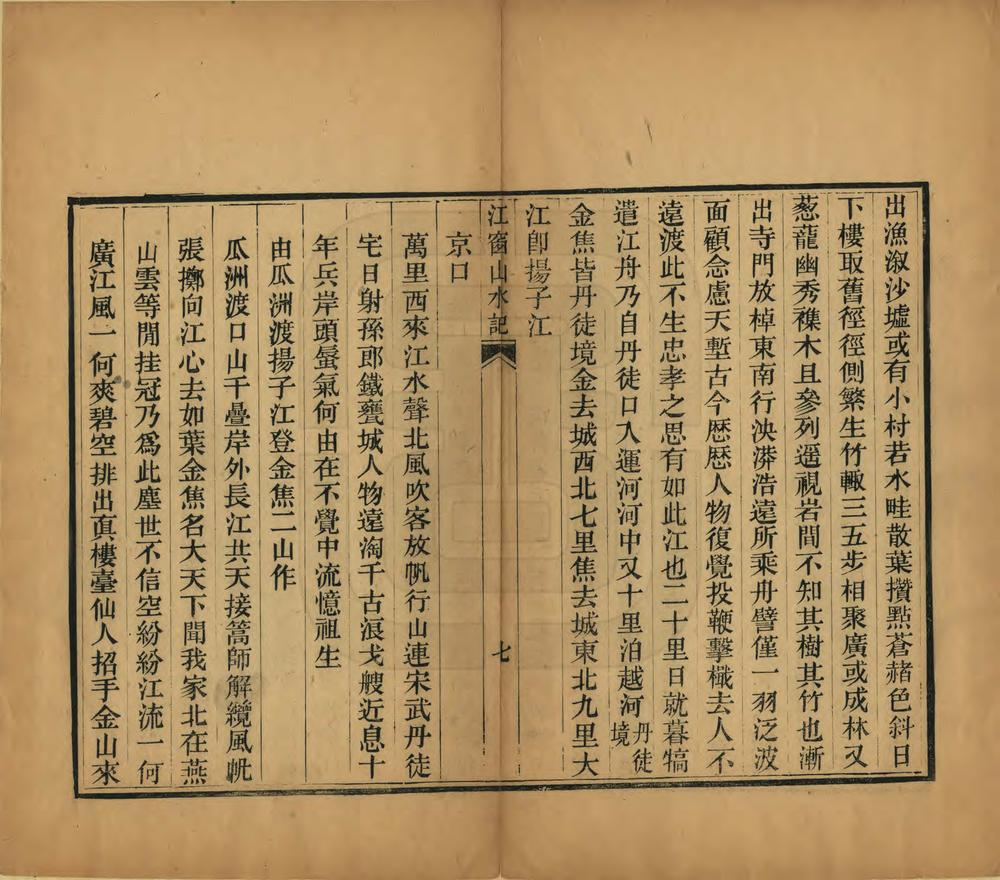 出漁漵沙墟或有小村若水畦散葉攢點蒼赭色斜日
下樓取舊徑徑側繁生竹輙三五步相聚廣或成林又
葱蘢幽秀穕木且參列遥視岩間不知其樹其竹也漸
出寺門放棹東南行泱漭浩遠所乘舟譬僅一羽泛波
面顧念慮天塹古今歴歴人物復覺投鞭擊檝去人不
遠渡此不生忠孝之思有如此江也二十里日就暮犒
遣江舟乃自丹徒口入運河河中又十里泊越河丹徒境
金焦皆丹徒境金去城西北七里焦去城東北九里大
江卽揚子江
江窗山水記
七
京口
萬里西來江水聲北風吹客放帆行山連宋武丹徒
宅日射孫郎鐵甕城人物遠淘千古浪戈艘近息十
年兵岸頭蜃氣何由在不覺中流憶祖生
由瓜洲渡揚子江登金焦二山作
瓜洲渡口山千疊岸外長江共天接篙師解纜風帆
張擲向江心去如葉金焦名大天下聞我家北在燕
山雲等閒挂冠乃爲此塵世不信空紛紛江流一何
廣江風一何爽碧空排出眞樓臺仙人招手金山來